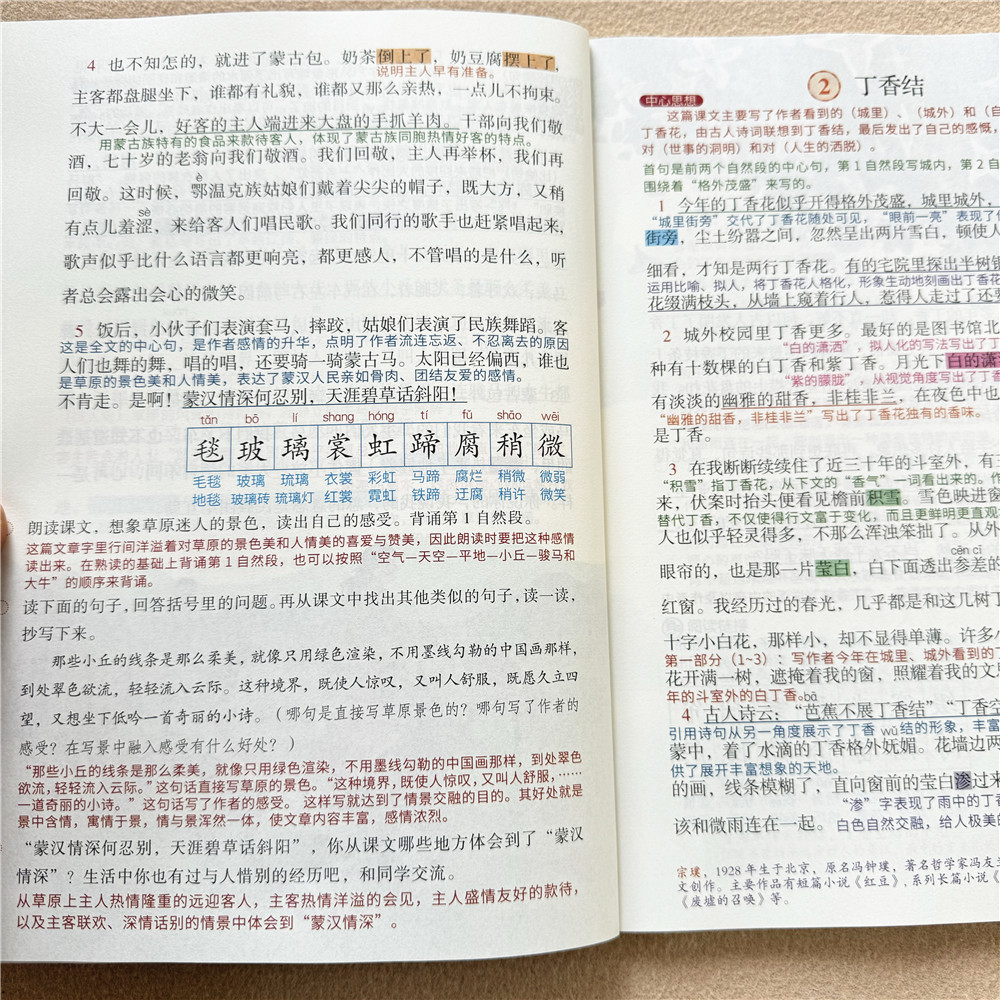 4 也不知怎的，就进了蒙古包。奶茶倒上了，奶豆腐摆上了，
说明主人早有准备。
主客都盘腿坐下，谁都有礼貌，谁都又那么亲热，一点儿不拘束。
不大一会儿，好客的主人端进来大盘的手抓羊肉。干部向我们敬
用蒙古族特有的食品来款待客人，体现了蒙古族同胞热情好客的特点。
酒，七十岁的老翁向我们敬酒。我们回敬，主人再举杯，我们再
è
回敬。这时候，鄂温克族姑娘们戴着尖尖的帽子，既大方，又稍
sè
有点儿羞涩，来给客人们唱民歌。我们同行的歌手也赶紧唱起来，
歌声似乎比什么语言都更响亮，都更感人，不管唱的是什么，听
者总会露出会心的微笑。
5 饭后，小伙子们表演套马、摔跤，姑娘们表演了民族舞蹈。客
这是全文的中心句，是作者感情的升华，点明了作者流连忘返、不忍离去的原因
人们也舞的舞，唱的唱，还要骑一骑蒙古马。太阳已经偏西，谁也
是草原的景色美和人情美，表达了蒙汉人民亲如骨肉、团结友爱的感情。
不肯走。是啊！蒙汉情深何忍别，天涯碧草话斜阳！
tǎn bō lí shang hóng tí fǔ shāo wēi
毯 玻 璃 裳 虹 蹄 腐 稍 微
毛毯 玻璃 琉璃 衣裳 彩虹 马蹄 腐烂 稍微 微弱
地毯 玻璃砖 琉璃灯 红裳 霓虹 铁蹄 迂腐 稍许 微笑
朗读课文，想象草原迷人的景色，读出自己的感受。背诵第1自然段。
这篇文章字里行间洋溢着对草原的景色美和人情美的喜爱与赞美，因此朗读时要把这种感情
读出来。在熟读的基础上背诵第1自然段，也可以按照“空气—天空—平地—小丘—骏马和
大牛”的顺序来背诵。
读下面的句子，回答括号里的问题。再从课文中找出其他类似的句子，读一读，
抄写下来。
那些小丘的线条是那么柔美，就像只用绿色渲染，不用墨线勾勒的中国画那样，
到处翠色欲流，轻轻流入云际。这种境界，既使人惊叹，又叫人舒服，既愿久立四
望，又想坐下低吟一首奇丽的小诗。（哪句是直接写草原景色的？哪句写了作者的
感受？在写景中融入感受有什么好处？）
“那些小丘的线条是那么柔美，就像只用绿色渲染，不用墨线勾勒的中国画那样，到处翠色
欲流，轻轻流入云际。”这句话直接写草原的景色。“这种境界，既使人惊叹，又叫人舒服，……
一道奇丽的小诗。”这句话写了作者的感受。 这样写就达到了情景交融的目的。其好处就是
景中含情，寓情于景，情与景浑然一体，使文章内容丰富，感情浓烈。
“蒙汉情深何忍别，天涯碧草话斜阳”，你从课文哪些地方体会到了“蒙汉
情深”？生活中你也有过与人惜别的经历吧，和同学交流。
从草原上主人热情隆重的远迎客人，主客热情洋溢的会见，主人盛情友好的款待，
以及主客联欢、深情话别的情景中体会到“蒙汉情深”。
2 丁香结
中心思想
这篇课文主要写了作者看到的（城里）、（城外）和（自
丁香花，由古人诗词联想到丁香结，最后发出了自己的感慨，
对（世事的洞明）和对（人生的洒脱）。
首句是前两个自然段的中心句，第1自然段写城内，第2自
围绕着“格外茂盛”来写的。
1 今年的丁香花似乎开得格外茂盛，城里城外，
“城里街旁”交代了丁香花随处可见，“眼前一亮”表现了
街旁，尘土纷嚣之间，忽然呈出两片雪白，顿使人
细看，才知是两行丁香花。有的宅院里探出半树银
运用比喻、拟人，将丁香花人格化，形象生动地刻画出丁香花
花缀满枝头，从墙上窥着行人，惹得人走过了还
2 城外校园里丁香更多。最好的是图书馆北
“白的潇洒”，拟人化的写法写出了丁
种有十数棵的白丁香和紫丁香。月光下白的潇
“紫的朦胧”，从视觉角度写出了丁香
有淡淡的幽雅的甜香，非桂非兰，在夜色中也
“幽雅的甜香，非桂非兰”写出了丁香花独有的香味。
是丁香。
3 在我断断续续住了近三十年的斗室外，有三
“积雪”指丁香花，从下文的“香气”一词看出来的。作
来，伏案时抬头便看见檐前积雪。雪色映进窗
替代丁香，不仅使得行文富于变化，而且更鲜明更直观
人也似乎轻灵得多，不那么浑浊笨拙了。从外
cēn cī
眼帘的，也是那一片莹白，白下面透出参差的
红窗。我经历过的春光，几乎都是和这几树丁
十字小白花，那样小，却不显得单薄。许多小
第一部分（1~3）：写作者今年在城里、城外看到的丁
花开满一树，遮掩着我的窗，照耀着我的文思
年的斗室外的白丁香。
bā
4 古人诗云：“芭蕉不展丁香结”“丁香空
引用诗句从另一角度展示了丁香结的形象，丰富
wǔ
蒙中，着了水滴的丁香格外妩媚。花墙边两
供了展开丰富想象的天地。
的画，线条模糊了，直向窗前的莹白渗过来
“渗”字表现了雨中的丁香
该和微雨连在一起。
白色自然交融，给人极美的
宗璞，1928年生于北京，原名冯钟璞，著名哲学家冯友
文创作。主要作品有短篇小说《红豆》，系列长篇小说《
《废墟的召唤》等。